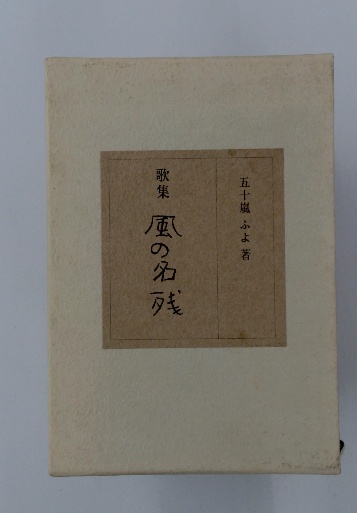 五十嵐 ふよ 著
歌集 風の名残